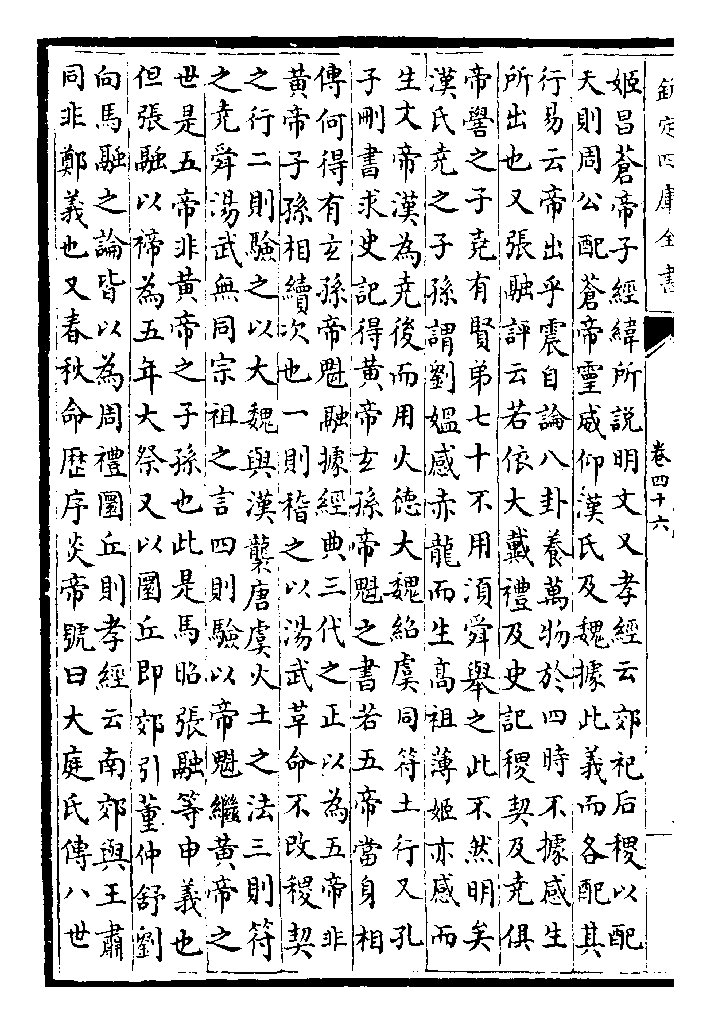 欽定四庫全書
卷四十六
姬昌蒼帝子經緯所説明文又孝經云郊祀后稷以配
天則周公配蒼帝靈威仰漢氏及魏據此義而各配其
行易云帝出乎震自論八卦養萬物於四時不據感生
所出也又張融評云若依大戴禮及史記稷契及堯俱
帝嚳之子堯有賢弟七十不用須舜舉之此不然明矣
漢氏堯之子孫謂劉媼感赤龍而生高祖薄姬亦感而
生文帝漢為堯後而用火徳大魏紹虞同符土行又孔
子刪書求史記得黄帝玄孫帝魁之書若五帝當身相
傳何得有玄孫帝魁融據經典三代之正以為五帝非
黄帝子孫相續次也一則稽之以湯武革命不改稷契
之行二則驗之以大魏與漢襲唐虞火土之法三則符
之堯舜湯武無同宗祖之言四則驗以帝魁繼黄帝之
世是五帝非黄帝之子孫也此是馬昭張融等申義也
但張融以禘為五年大祭又以圜丘即郊引董仲舒劉
向馬融之論皆以為周禮圜丘則孝經云南郊與王肅
同非鄭義也又春秋命歴序炎帝號曰大庭氏傳八世